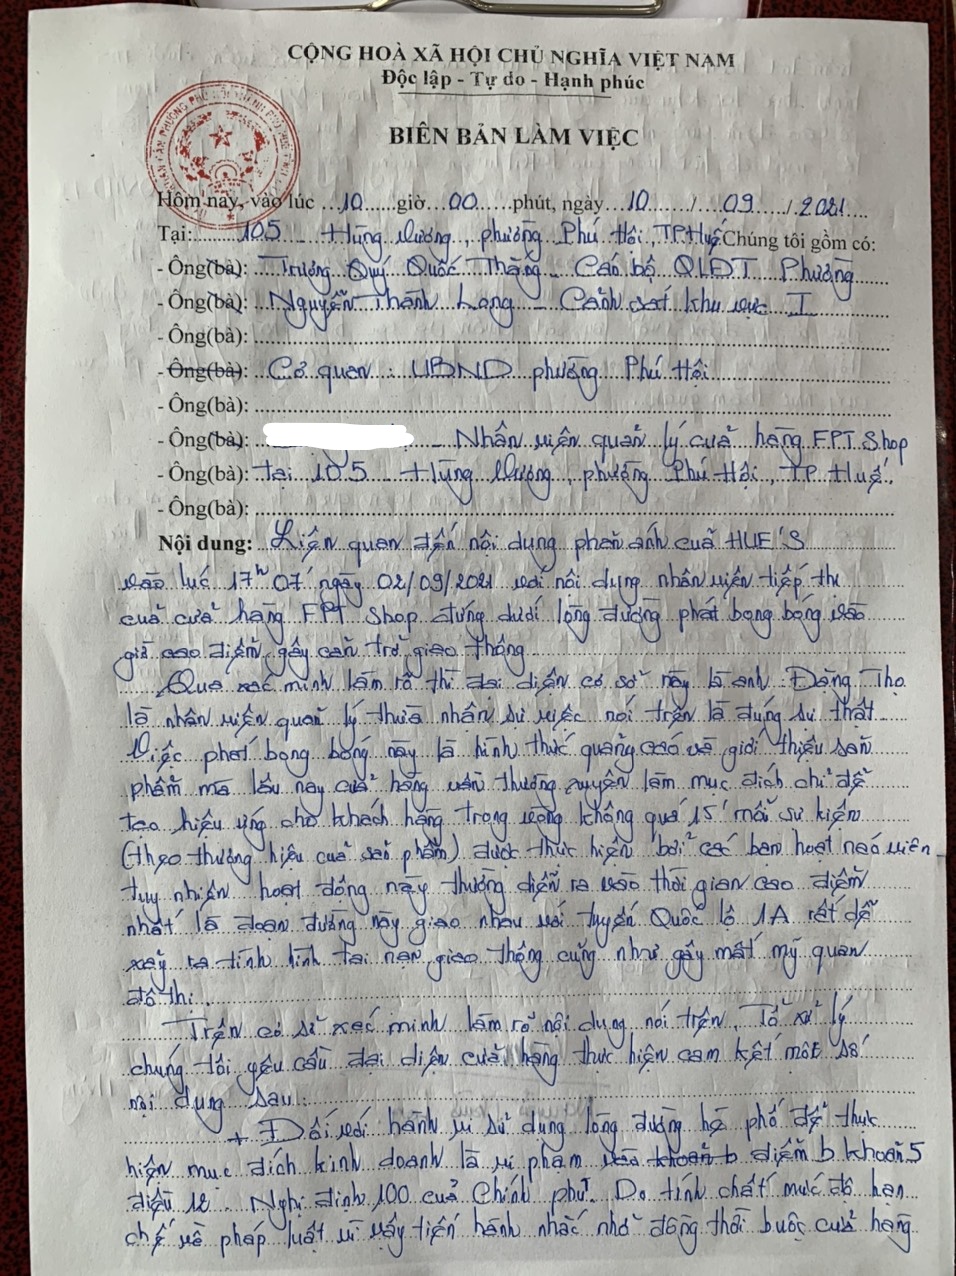 CỘNG HOÀ XÃ HỘI CHỦ NGHĨA VIỆT NAM
Độc lập - Tự do - Hạnh phúc
BIÊN BẢN LÀM VIỆC
Hôm nay, vào lúc 10 giờ 00 phút, ngày 10 / 09 / 2021
Tại: 105 Hùng Vương, phường Phú Hội, TP Huế Chúng tôi gồm có:
- Ông(bà): Trương Quý Quốc Thắng - Cán bộ QLĐT Phường
- Ông(bà): Nguyễn Thành Long - Cảnh sát khu vực I
- Ông(bà):
- Ông(bà): Cơ quan: UBND phường Phú Hội
- Ông(bà):
- Ông(bà): - Nhân viên quản lý cửa hàng FPT Shop
- Ông(bà): tại 105 Hùng Vương, phường Phú Hội, TP. Huế.
- Ông(bà):
Nội dung: Liên quan đến nội dung phản ánh của HUE'S
vào lúc 17h07' ngày 02/09/2021 với nội dung nhân viên tiếp thị
của cửa hàng FPT Shop đứng dưới lòng đường phát bong bóng vào
giờ cao điểm, gây cản trở giao thông.
Qua xác minh làm rõ thì đại diện cơ sở này là anh: Đặng Thọ
là nhân viên quản lý thừa nhận sự việc nói trên là đúng sự thật
Việc phát bong bóng này là hình thức quảng cáo và giới thiệu sản
phẩm mà lâu nay cửa hàng vẫn thường xuyên làm mục đích chỉ để
tạo hiệu ứng cho khách hàng trong vòng không quá 15' mỗi sự kiện
(theo thương hiệu của sản phẩm) được thực hiện bởi các bạn hoạt náo viên
tuy nhiên hoạt động này thường diễn ra vào thời gian cao điểm
nhất là đoạn đường này giao nhau với tuyến Quốc lộ 1A rất dễ
xảy ra tình hình tai nạn giao thông cũng như gây mất mỹ quan
đô thị.
Trên cơ sở xác minh làm rõ nội dung nói trên, Tổ xử lý
chúng tôi yêu cầu đại diện cửa hàng thực hiện cam kết một số
nội dung sau:
+ Đối với hành vi sử dụng lòng đường hè phố để thực
hiện mục đích kinh doanh là vi phạm khoản b điểm b khoản 5
điều 12 Nghị định 100 của Chính phủ. Do tính chất mức độ hạn
chế về pháp luật vì vậy tiến hành nhắc nhở đồng thời buộc cửa hàng